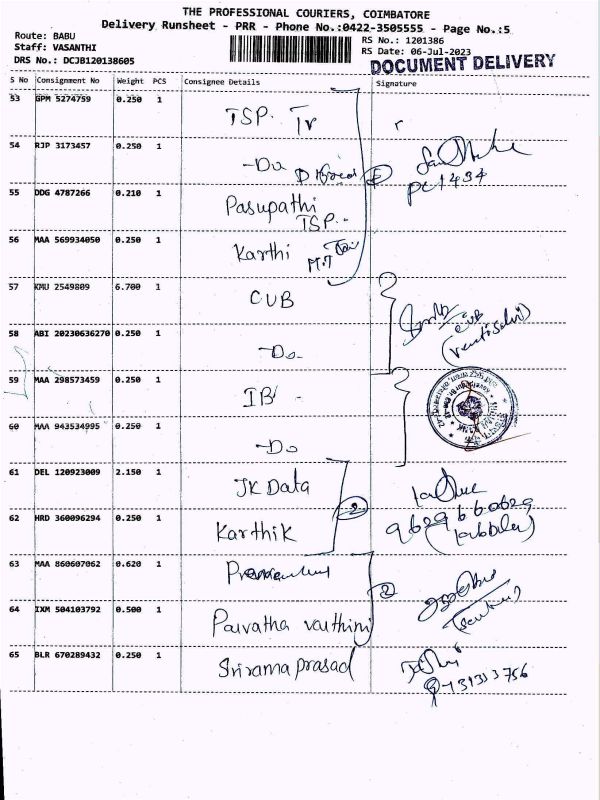 THE PROFESSIONAL COURIERS, COIMBATORE
Delivery Runsheet - PRR - Phone No.:0422-3505555 - Page No.:5
Route: BABU
RS No.: 1201386
Staff: VASANTHI
RS Date: 06-Jul-2023
DRS No.: DCJB120138605
DOCUMENT DELIVERY
S No Consignment No Weight PCS Consignee Details Signature
53 GPM 5274759 0.250 1
TSP. Tr
54 RJP 3173457 0.250 1
-Do
PC 1434
55 DDG 4787266 0.210 1
Pasupathi
TSP.
56 MAA 569934050 0.250 1
Karthi
57 KMU 2549809 6.700 1
CUB
CUB
58 ABI 20230636270 0.250 1
-Do-
59 MAA 298573459 0.250 1
IB
60 MAA 943534995 0.250 1
-Do
61 DEL 120923009 2.150 1
JK Data
2
62 HRD 360096294 0.250 1
Karthik
9629660629
63 MAA 860607062 0.620 1
2
64 IXM 504103792 0.500 1
Parvatha varthini
65 BLR 670289432 0.250 1
Srirama prasad